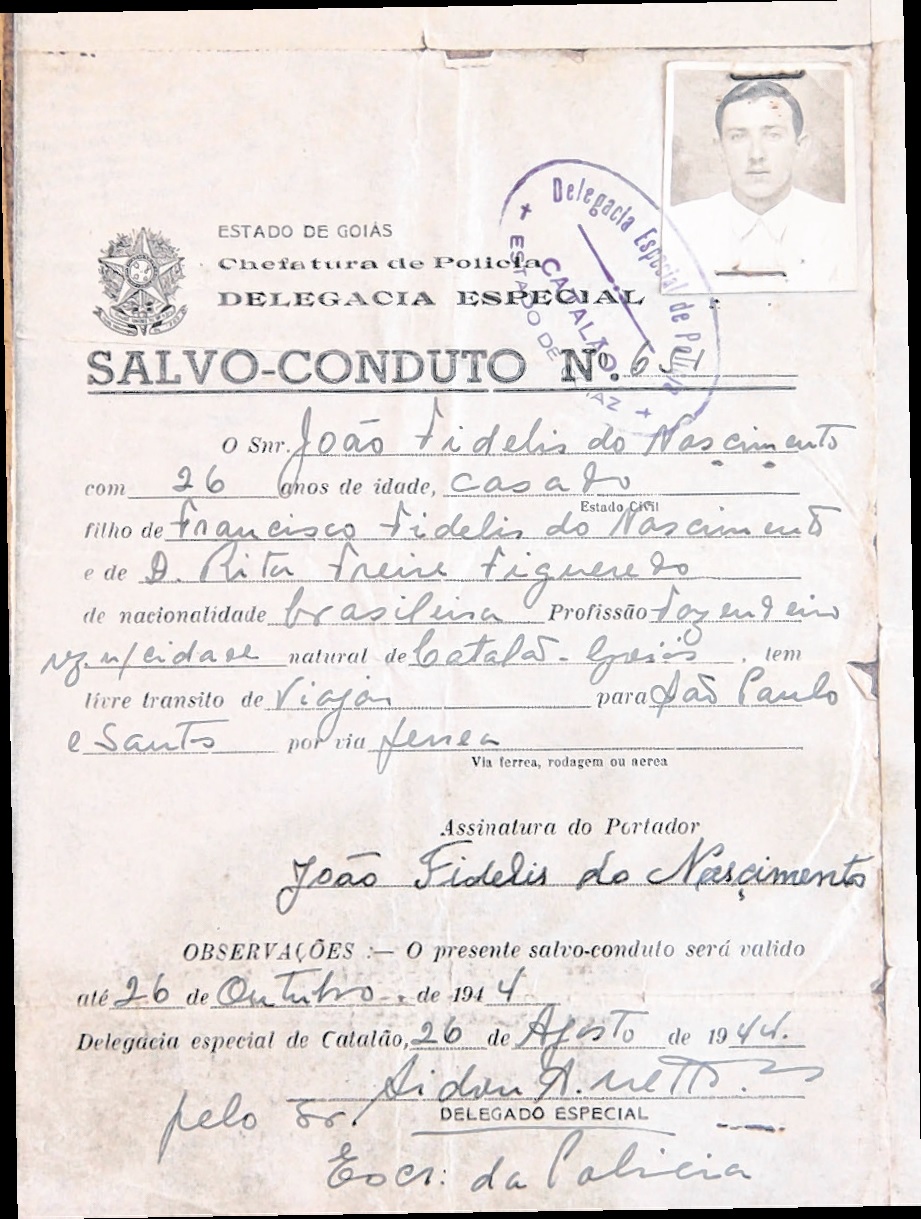 ESTADO DE GOIÁS
Chefatura de Policia
DELEGACIA ESPECIAL
Delegacia Especial de Policia
CATALÃO
ESTADO DE
SALVO-CONDUTO Nº. 651
O Snr. João Fidelis do Nascimento
com 26 anos de idade, casado
Estado Civil
filho de Francisco Fidelis do Nascimento
e de D. Rita Freire Figueredo
de nacionalidade brasileira Profissão Fazendeiro
rez. n/cidade natural de Catalão - Goiás, tem
livre transito de Viajar para São Paulo
e Santos por via ferrea
Via ferrea, rodagem ou aerea
Assinatura do Portador
João Fidelis do Nascimento
OBSERVAÇÕES :— O presente salvo-conduto será valido
até 26 de Outubro de 1944
Delegacia especial de Catalão, 26 de Agosto de 1944.
DELEGADO ESPECIAL
pelo
Escr: da Policia